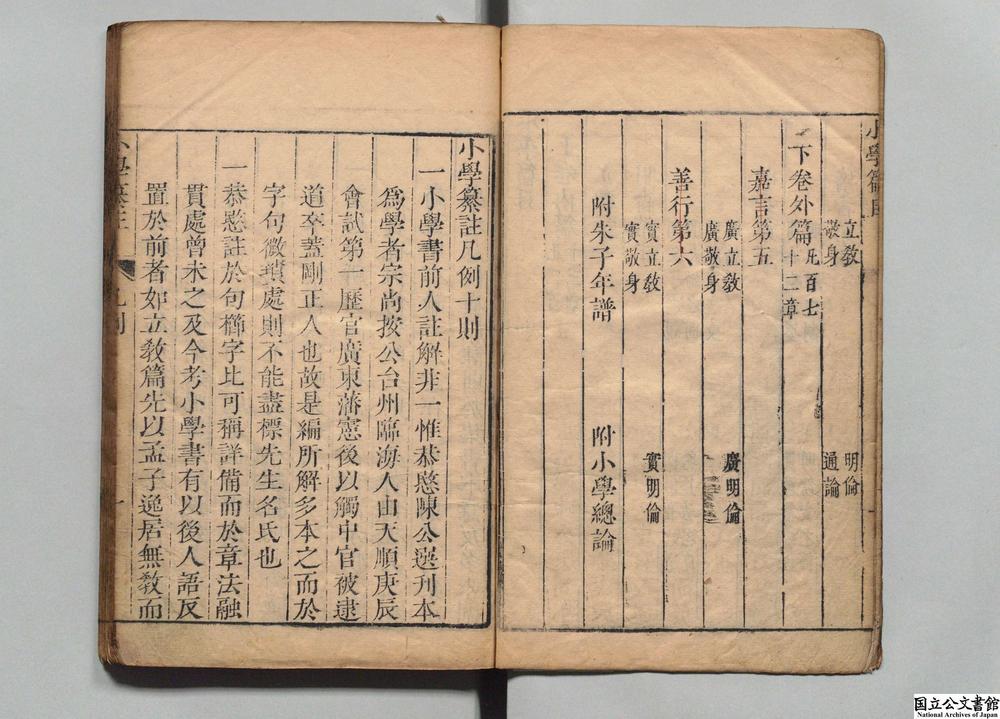 小學篇目
立敎 明倫
敬身 通論
下卷外篇 凡百七十二章
嘉言第五
廣立敎 廣明倫
廣敬身
善行第六
實立敎 實明倫
實敬身
附朱子年譜 附小學總論
小學纂註凡例十則
一小學書前人註解非一惟恭愍陳公選刊本
爲學者宗尚按公台州臨海人由天順庚辰
會試第一歷官廣東藩憲後以觸中官被逮
道卒蓋剛正人也故是編所解多本之而於
字句微瑣處則不能盡標先生名氏也
一恭愍註於句櫛字比可稱詳備而於章法融
貫處曾未之及今考小學書有以後人語反
置於前者如立敎篇先以孟子逸居無敎而
小學纂註 凡例 一
国立公文書館
National Archives of Japan